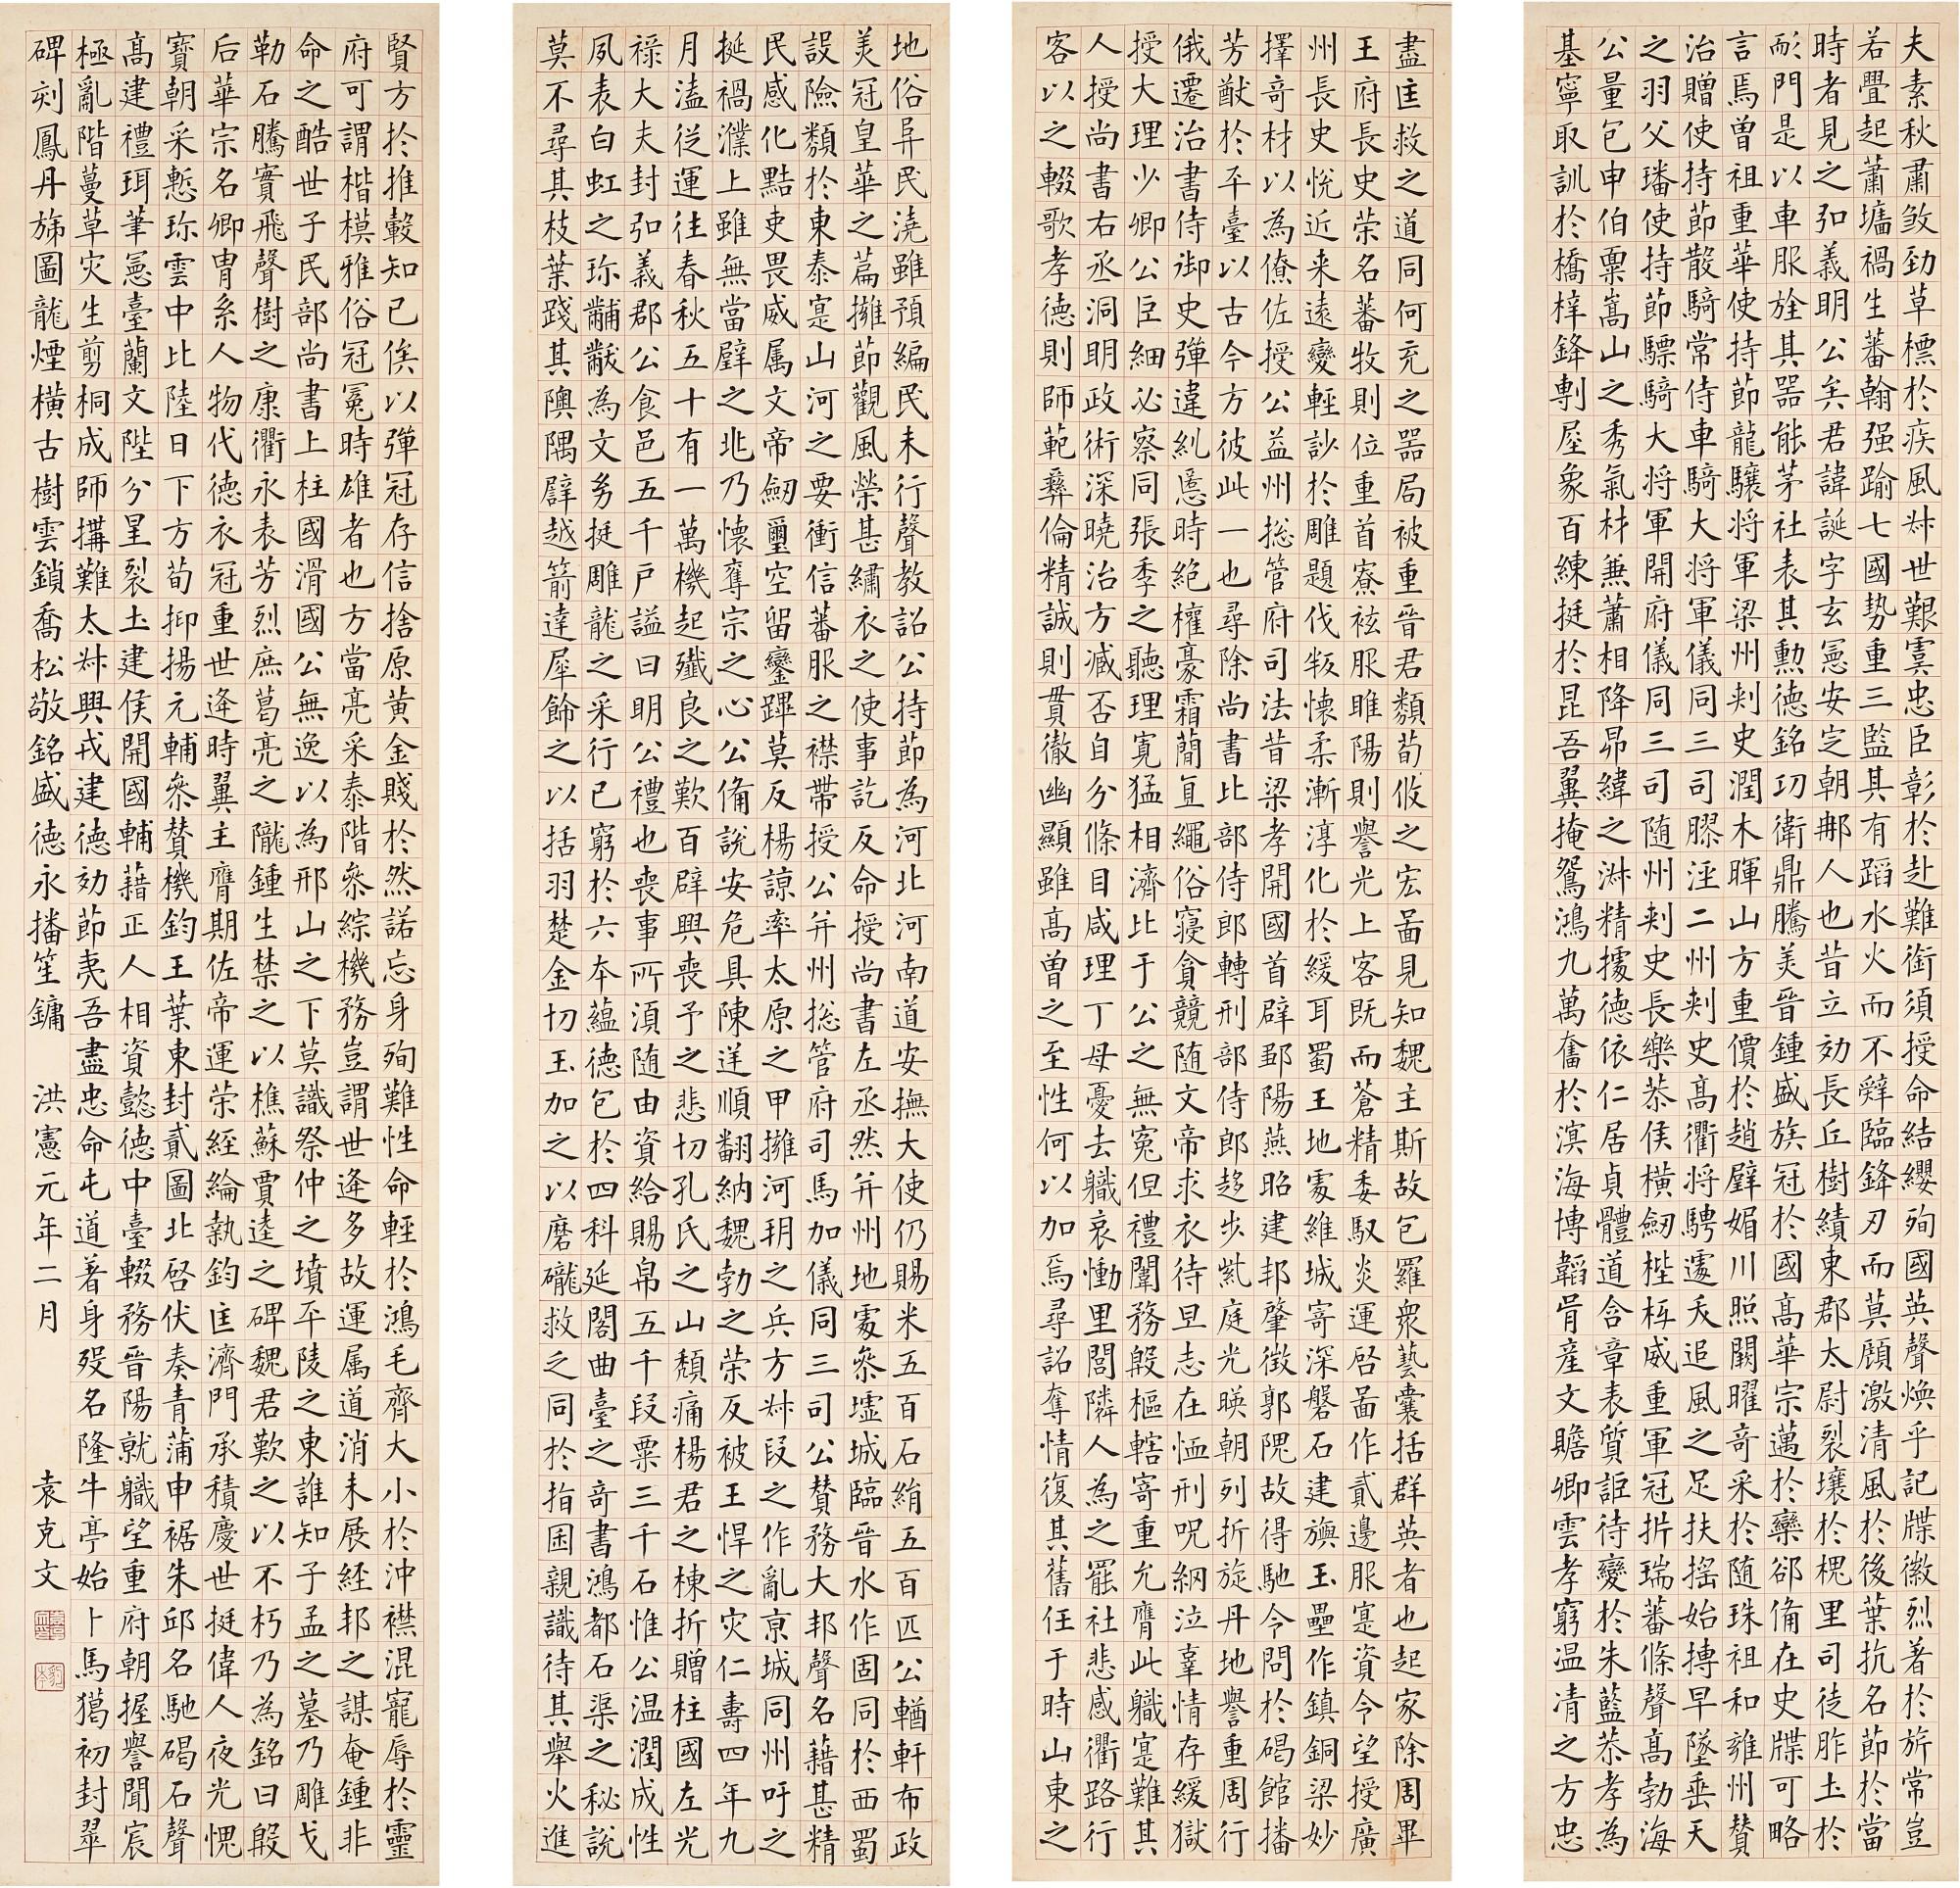 夫素秋肅煞勁草標於疾風叔世艱虞忠臣彰於赴難銜須授命結纓殉國英聲煥乎記牒徽烈著於旂常豈
若疊起蕭墻禍生蕃翰强踰七國勢重三監其有蹈水火而不辭臨鋒刃而莫顧激清風於後葉抗名節於當
時者見之弘義明公矣君諱誕字玄憲安定朝那人也昔立効長丘樹績東郡太尉裂壤於槐里司徒胙土於
耏門是以車服旌其器能茅社表其勳德銘功衛鼎騰美晉鍾盛族冠於國高華宗邁於欒郤備在史牒可略
言焉曾祖重華使持節龍驤将軍梁州刺史潤木暉山方重價於趙璧媚川照闕曜奇采於随珠祖和雍州贊
治贈使持節散騎常侍車騎大将軍儀同三司膠涇二州刺史高衢将騁遽夭追風之足扶搖始搏早墜垂天
之羽父璠使持節驃騎大将軍開府儀同三司随州刺史長樂恭侯横劒梐枑威重軍冠析瑞蕃條聲高勃海
公量包申伯禀嵩山之秀氣材兼蕭相降昴緯之淋精據德依仁居貞體道含章表質詎待變於朱藍恭孝為
基寧取訓於橋梓鋒剸犀象百練挺於昆吾翼掩鴛鴻九萬奮於溟海博韜胥産文贍卿雲孝窮温清之方忠
盡匡救之道同何充之器局被重晉君類荀攸之宏啚見知魏主斯故包羅衆藝囊括群英者也起家除周畢
王府長史荣名蕃牧則位重首寮袨服睢陽則譽光上客既而蒼精委馭炎運啓啚作貳邊服寔資令望授廣
州長史悅近来遠變輕訬於雕題伐叛懷柔漸淳化於緩耳蜀王地處維城寄深磐石建旟玉壘作鎮銅梁妙
擇奇材以為僚佐授公益州総管府司法昔梁孝開國首辟鄒陽燕昭建邦肇徵郭隗故得馳令問於碣館播
芳猷於平臺以古今方彼此一也尋除尚書比部侍郎轉刑部侍郎趍步紫庭光暎朝列折旋丹地譽重周行
俄遷治書侍御史彈違糺慝時絶權豪霜簡直繩俗寢貪競随文帝求衣待旦志在恤刑呪網泣辜情存緩獄
授大理少卿公巨細必察同張季之聽理寬猛相濟比于公之無冤但禮闈務殷樞轄寄重允膺此職寔難其
人授尚書右丞洞明政術深曉治方臧否自分條目咸理丁母憂去職哀慟里閭隣人為之罷社悲感衢路行
客以之輟歌孝德則師範彝倫精誠則貫徹幽顯雖高曾之至性何以加焉尋詔奪情復其舊任于時山東之
地俗异民澆雖預編民未行聲教詔公持節為河北河南道安撫大使仍賜米五百石絹五百匹公輶軒布政
美冠皇華之篇擁節觀風榮甚繡衣之使事訖反命授尚書左丞然并州地處叅墟城臨晉水作固同於西蜀
設險類於東泰寔山河之要衝信蕃服之襟帶授公并州総管府司馬加儀同三司公贊務大邦聲名藉甚精
民感化黠吏畏威属文帝劒璽空留鑾蹕莫反楊諒率太原之甲擁河玥之兵方叔段之作亂京城同州吁之
挻禍濮上雖無當璧之兆乃懷奪宗之心公備說安危具陳逆順翻納魏勃之荣反被王悍之灾仁壽四年九
月溘從運往春秋五十有一萬機起殲良之歎百辟興喪予之悲切孔氏之山頹痛楊君之棟折贈柱國左光
禄大夫封弘義郡公食邑五千戶謚曰明公禮也喪事所須随由資給賜帛五千段粟三千石惟公温潤成性
夙表白虹之珍黼黻為文㓜挺雕龍之采行已窮於六本蘊德包於四科延閣曲臺之奇書鴻都石渠之秘說
莫不尋其枝葉踐其隩隅辟越箭達犀飾之以括羽楚金切玉加之以磨礲救之同於指囷親識待其舉火進
賢方於推轂知已俟以彈冠存信捨原黄金賤於然諾忘身殉難性命輕於鴻毛齊大小於沖襟混寵辱於靈
府可謂楷模雅俗冠冕時雄者也方當亮采泰階叅綜機務豈謂世逢多故運属道消未展経邦之謀奄鍾非
命之酷世子民部尚書上柱國滑國公無逸以為邢山之下莫識祭仲之墳平陵之東誰知子孟之墓乃雕戈
勒石騰實飛聲樹之康衢永表芳烈庶葛亮之隴鍾生禁之以樵蘇賈逵之碑魏君歎之以不朽乃為銘曰殷
后華宗名卿冑系人物代德衣冠重世逢時翼主膺期佐帝運荣経綸執鈞匡濟門承積慶世挺偉人夜光愧
寶朝采慙珍雲中比陸日下方荀抑揚元輔叅贊機鈞王葉東封貳圖北啓伏奏青蒲申裾朱邱名馳碣石聲
高建禮珥筆憲臺蘭文陛分星裂土建侯開國輔藉正人相資懿德中臺輟務晉陽就職望重府朝握譽聞宸
極亂階蔓草灾生剪桐成師搆難太叔興戎建德効節夷吾盡忠命屯道著身殁名隆牛亭始卜馬獦初封翠
碑刻鳳丹旐圖龍煙横古樹雲鎖喬松敬銘盛德永播笙鏞 洪憲元年二月 袁克文